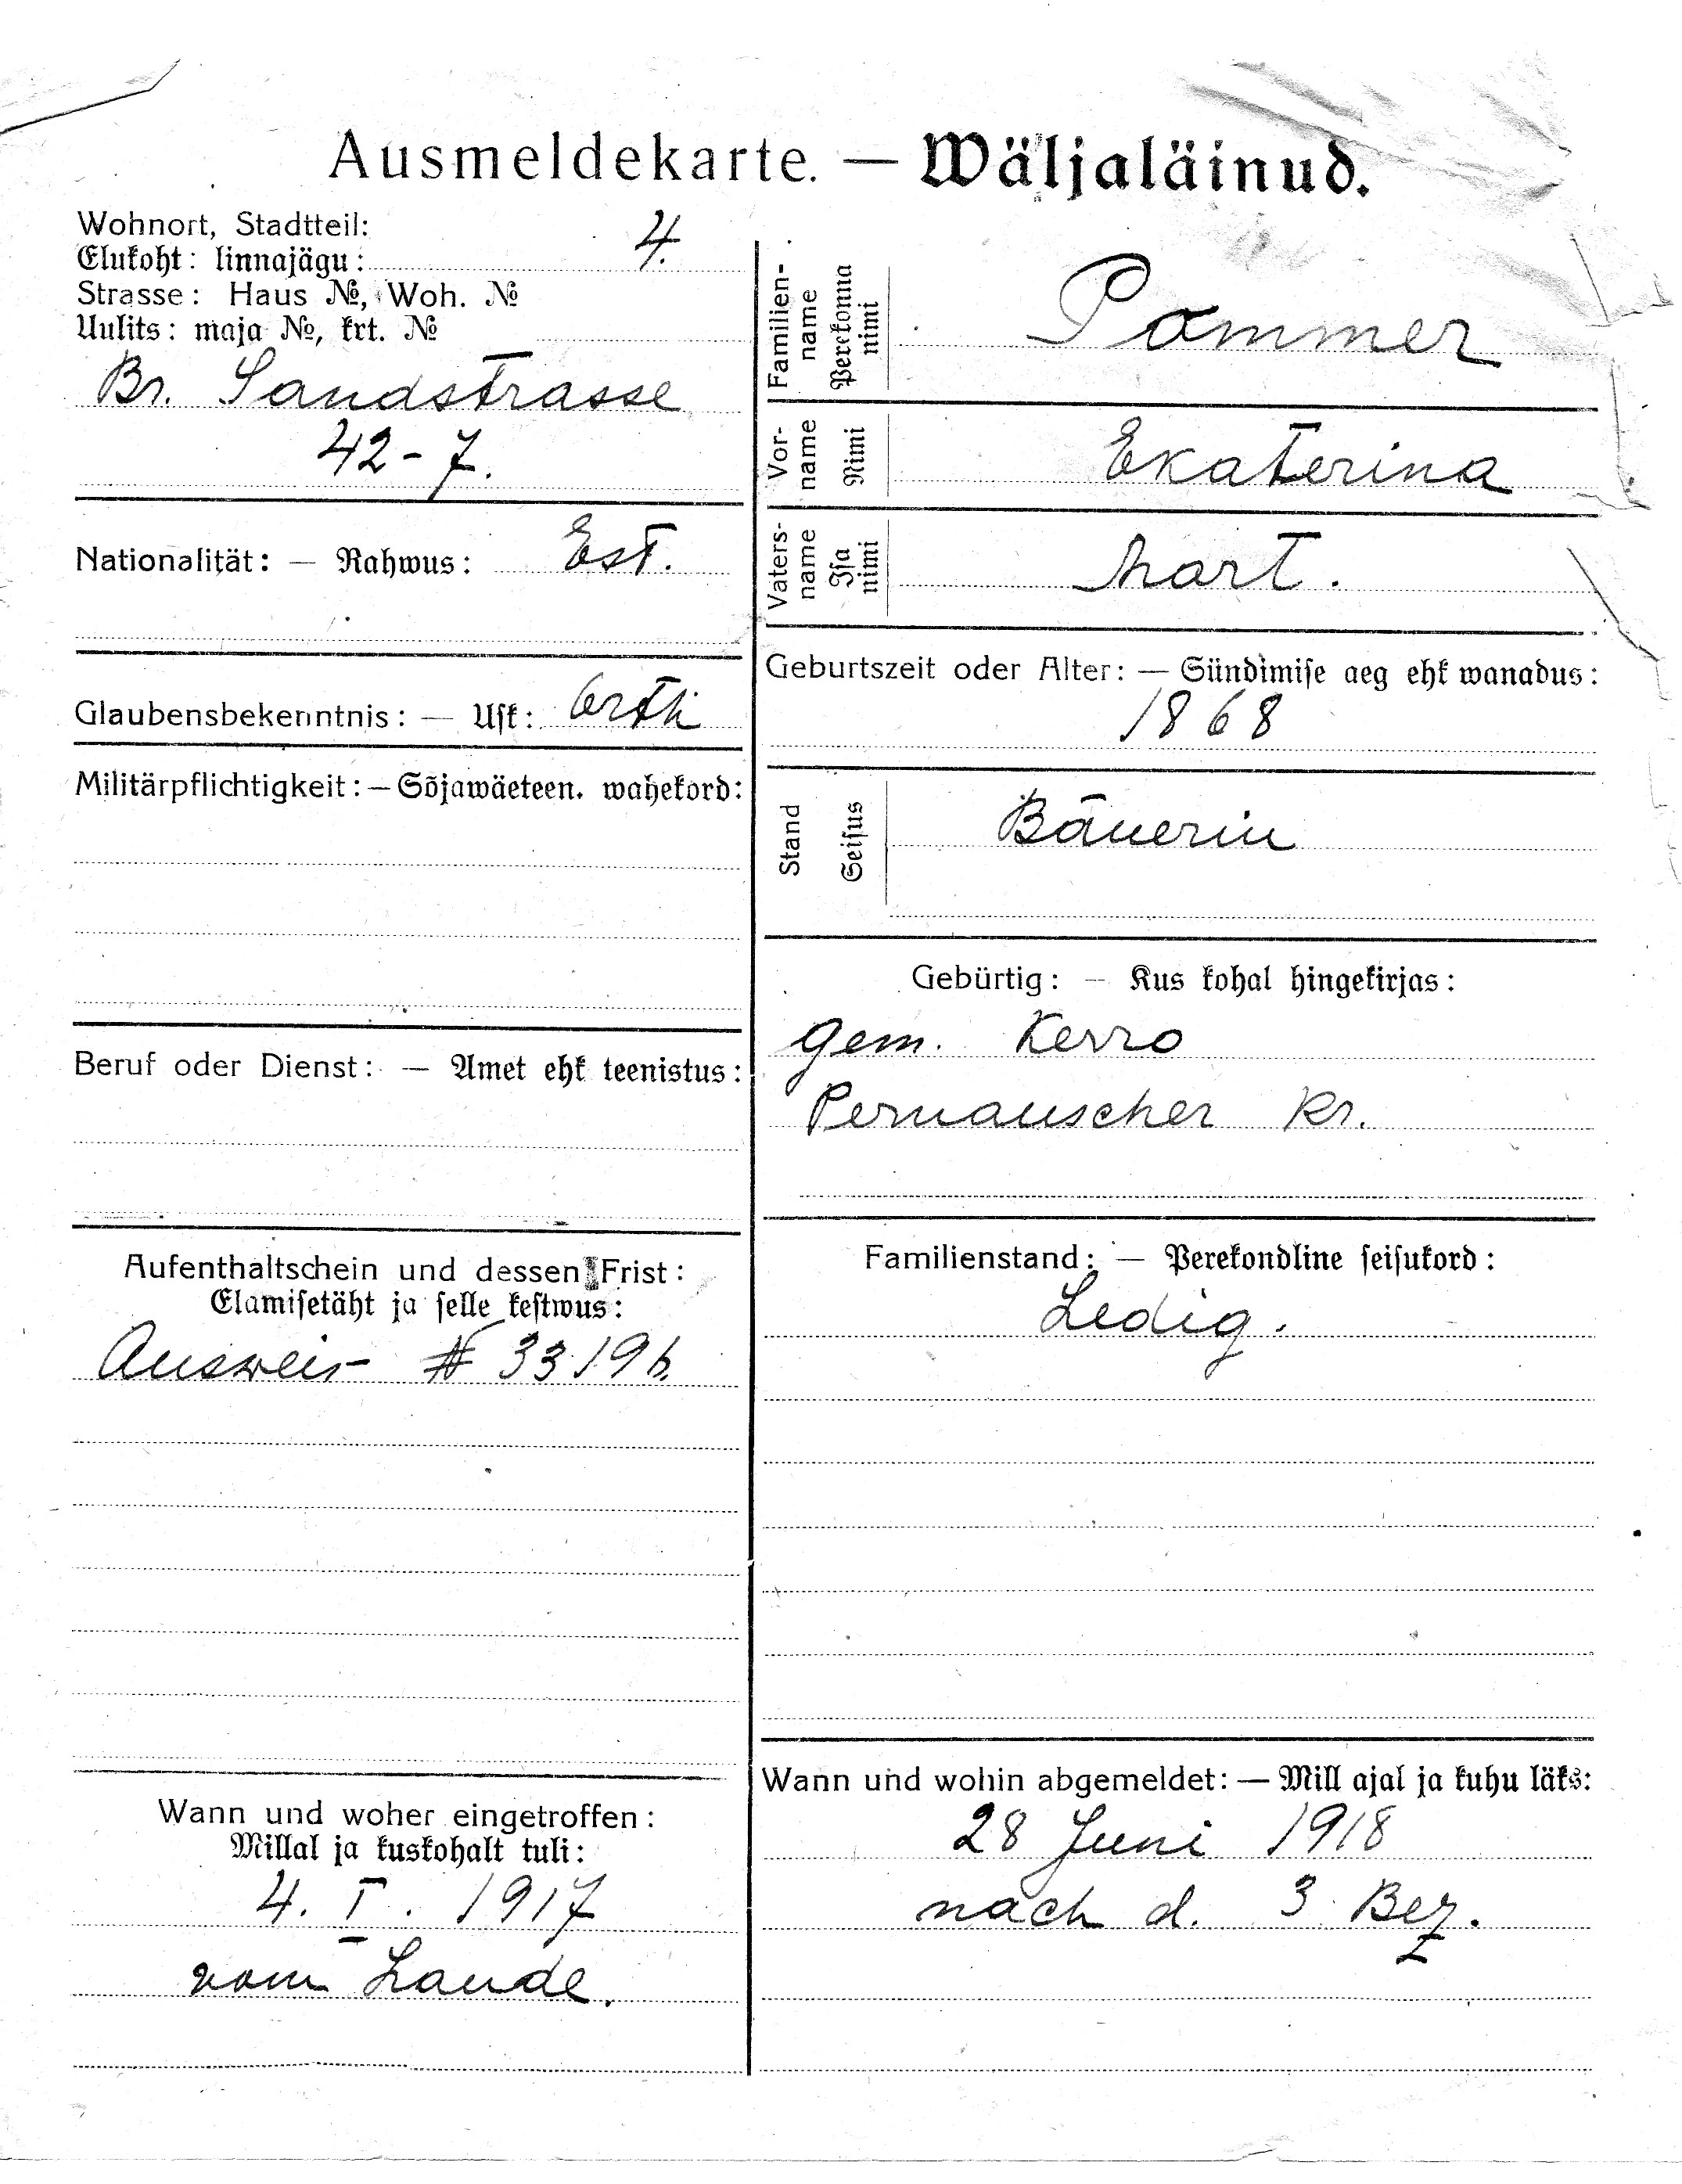 Ausmeldekarte. — Wäljaläinud.
Wohnort, Stadtteil:
Elukoht: linnajägu: 4.
Strasse: Haus №, Woh. №
Uulits: maja №, krt. №
Br. Sandstrasse
42-7.
Nationalität: — Rahwus: Est.
Glaubensbekenntnis: — Usk: Orth
Militärpflichtigkeit: — Sõjawäeteen. wahekord:
Beruf oder Dienst: — Amet ehk teenistus:
Aufenthaltschein und dessen Frist:
Elamisetäht ja selle kestwus:
Ausweis № 33196.
Wann und woher eingetroffen:
Millal ja kuskohalt tuli:
4. I. 1917
vom Lande.
Familien-
name
Perekonna
nimi
Pommer
Vor-
name
Nimi
Ekaterina
Vaters-
name
Isa
nimi
Mart.
Geburtszeit oder Alter: — Sündimise aeg ehk wanadus:
1868
Stand
Seisus
Bäuerin
Gebürtig: — Kus kohal hingekirjas:
Gem. Kerro
Pernauscher Kr.
Familienstand: — Perekondline seisukord:
Ledig.
Wann und wohin abgemeldet: — Mill ajal ja kuhu läks:
28 Juni 1918
nach d. 3 Bez.